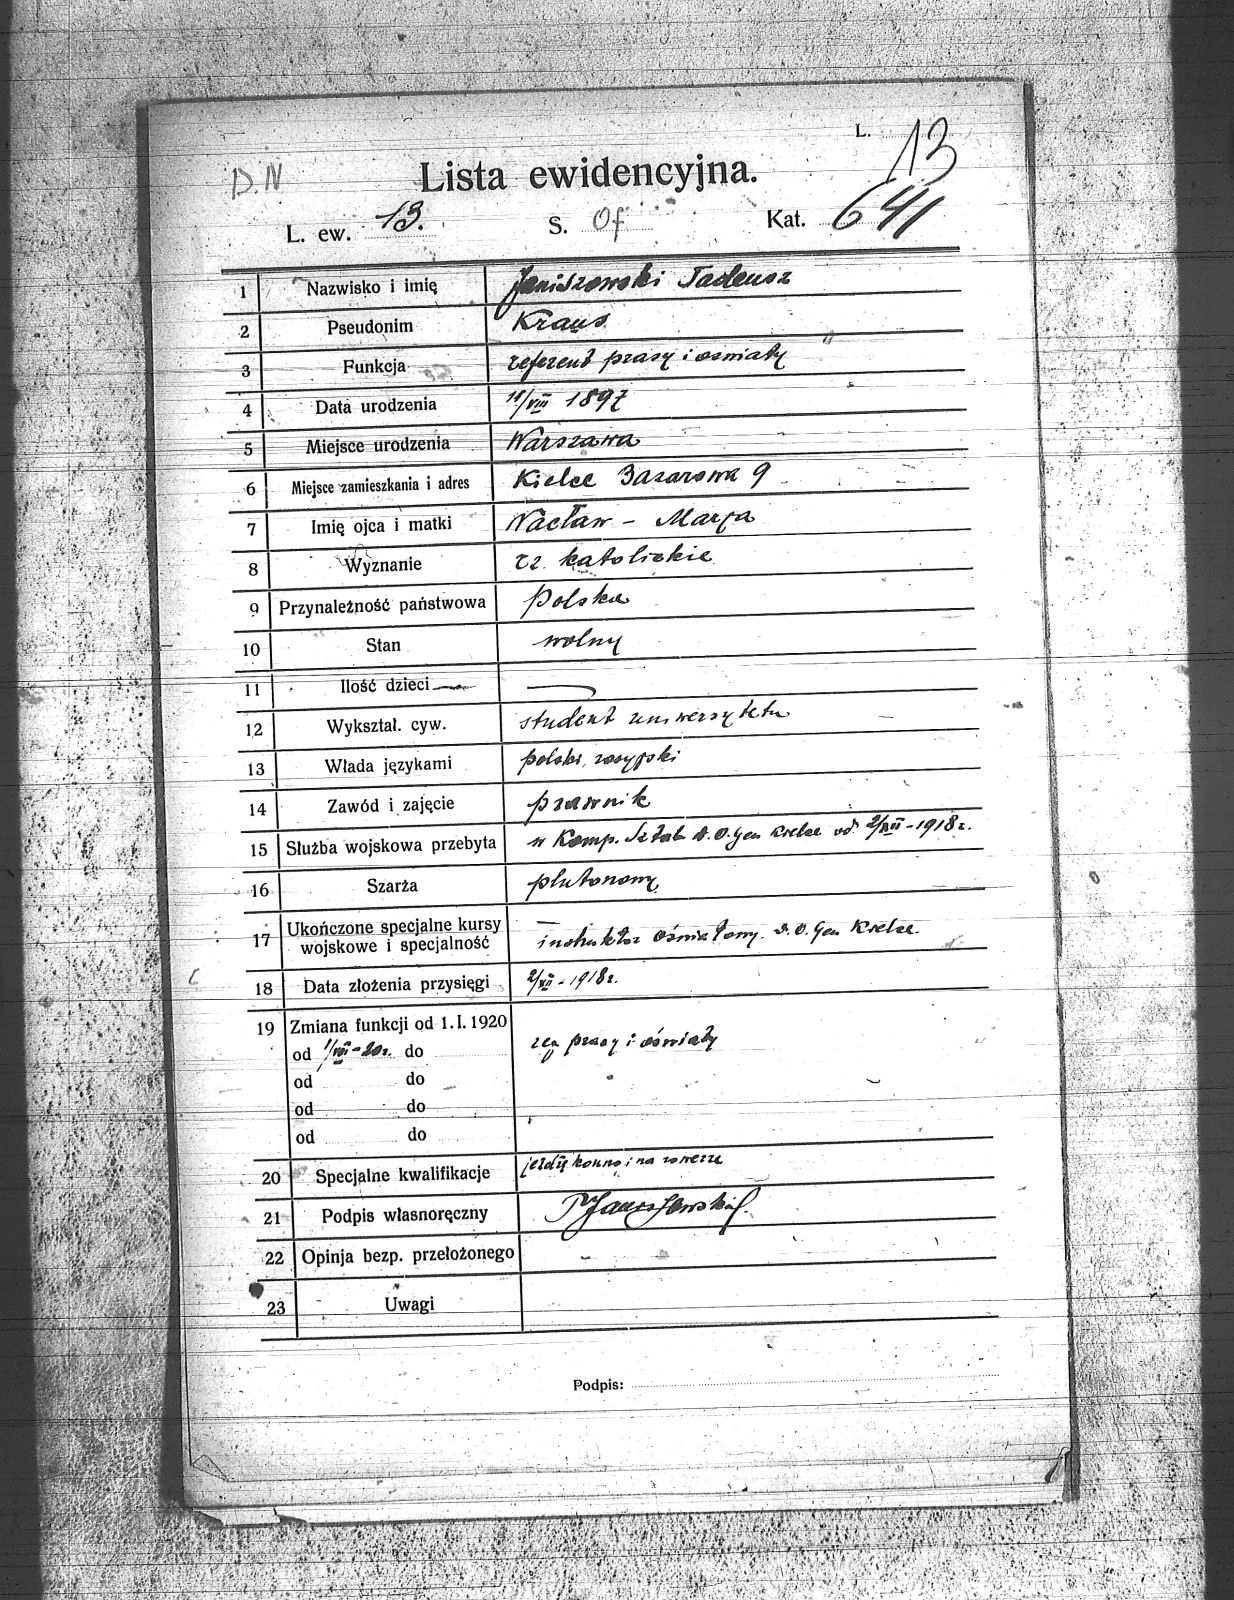 L. 13
D.N
Lista ewidencyjna.
L. ew. 13. S. Of Kat. 641
1 Nazwisko i imię Janiszowski Tadeusz
2 Pseudonim Kraus
3 Funkcja referent prasy i oświaty
4 Data urodzenia /VIII 1897
5 Miejsce urodzenia Warszawa
6 Miejsce zamieszkania i adres Kielce Bazarowa 9
7 Imię ojca i matki Wacław - Marja
8 Wyznanie rz. katolickie
9 Przynależność państwowa Polska
10 Stan wolny
11 Ilość dzieci —
12 Wykształ. cyw. student uniwersytetu
13 Włada językami polski, rosyjski
14 Zawód i zajęcie prawnik
15 Służba wojskowa przebyta w Komp. Sztab. D.O.Gen Kielce od 2/XII - 1918 r.
16 Szarża plutonowy
17 Ukończone specjalne kursy
wojskowe i specjalność instruktor oświatowy. D.O.Gen Kielce.
18 Data złożenia przysięgi 2/XII - 1918 r.
19 Zmiana funkcji od 1. I. 1920
od 1/VIII - 20 r. do ref prasy i oświaty
od do
od do
od do
20 Specjalne kwalifikacje jeżdżę konno i na rowerze
21 Podpis własnoręczny Janiszowski
22 Opinja bezp. przełożonego
23 Uwagi
Podpis: